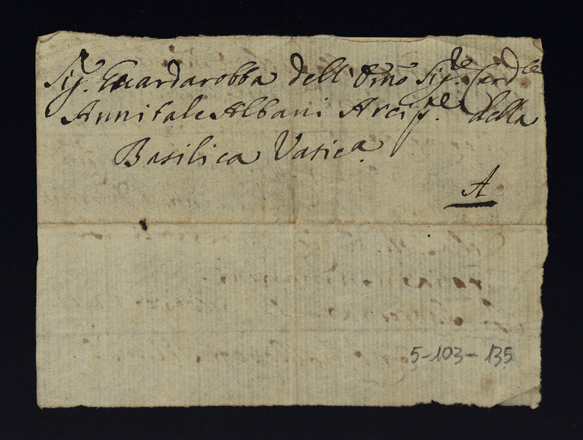 Sig. Guardarobba dell' Emo Sigre Cardle
Annibale Albani Arcipe. della
Basilica Vatica.
A
5-103-135